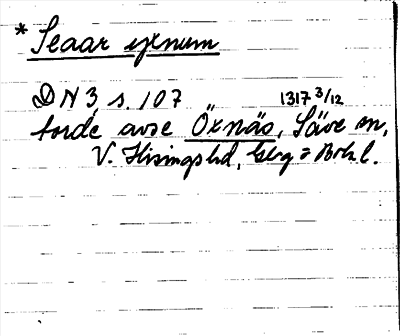 * Seaar yxnum
DN 3, s. 107 1317 3/12
torde avse Öxnäs, Säve sn,
V. Hisings hd, Gbg o Boh l.